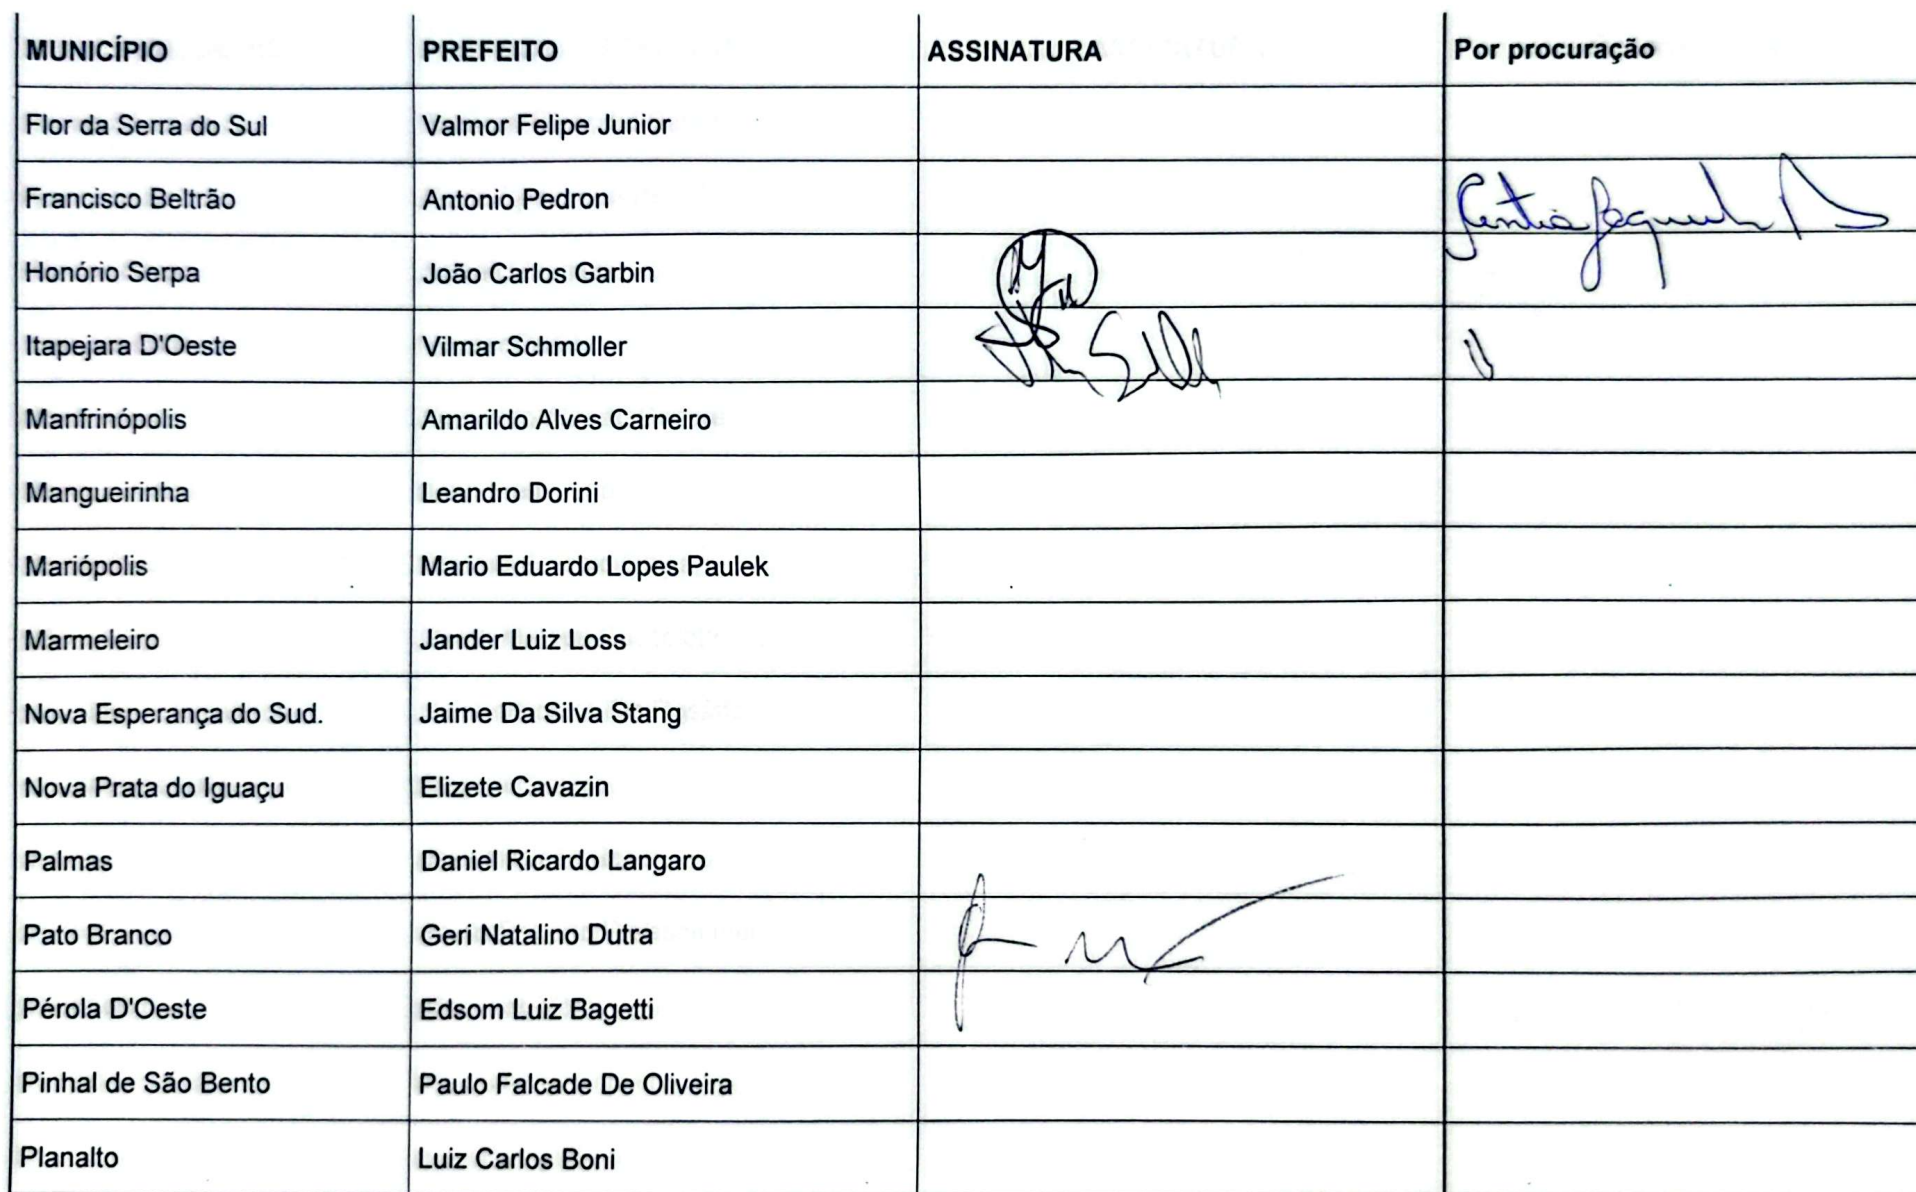 MUNICÍPIO PREFEITO ASSINATURA Por procuração
Flor da Serra do Sul Valmor Felipe Junior
Francisco Beltrão Antonio Pedron
Honório Serpa João Carlos Garbin
Itapejara D'Oeste Vilmar Schmoller
Manfrinópolis Amarildo Alves Carneiro
Mangueirinha Leandro Dorini
Mariópolis Mario Eduardo Lopes Paulek
Marmeleiro Jander Luiz Loss
Nova Esperança do Sud. Jaime Da Silva Stang
Nova Prata do Iguaçu Elizete Cavazin
Palmas Daniel Ricardo Langaro
Pato Branco Geri Natalino Dutra
Pérola D'Oeste Edsom Luiz Bagetti
Pinhal de São Bento Paulo Falcade De Oliveira
Planalto Luiz Carlos Boni